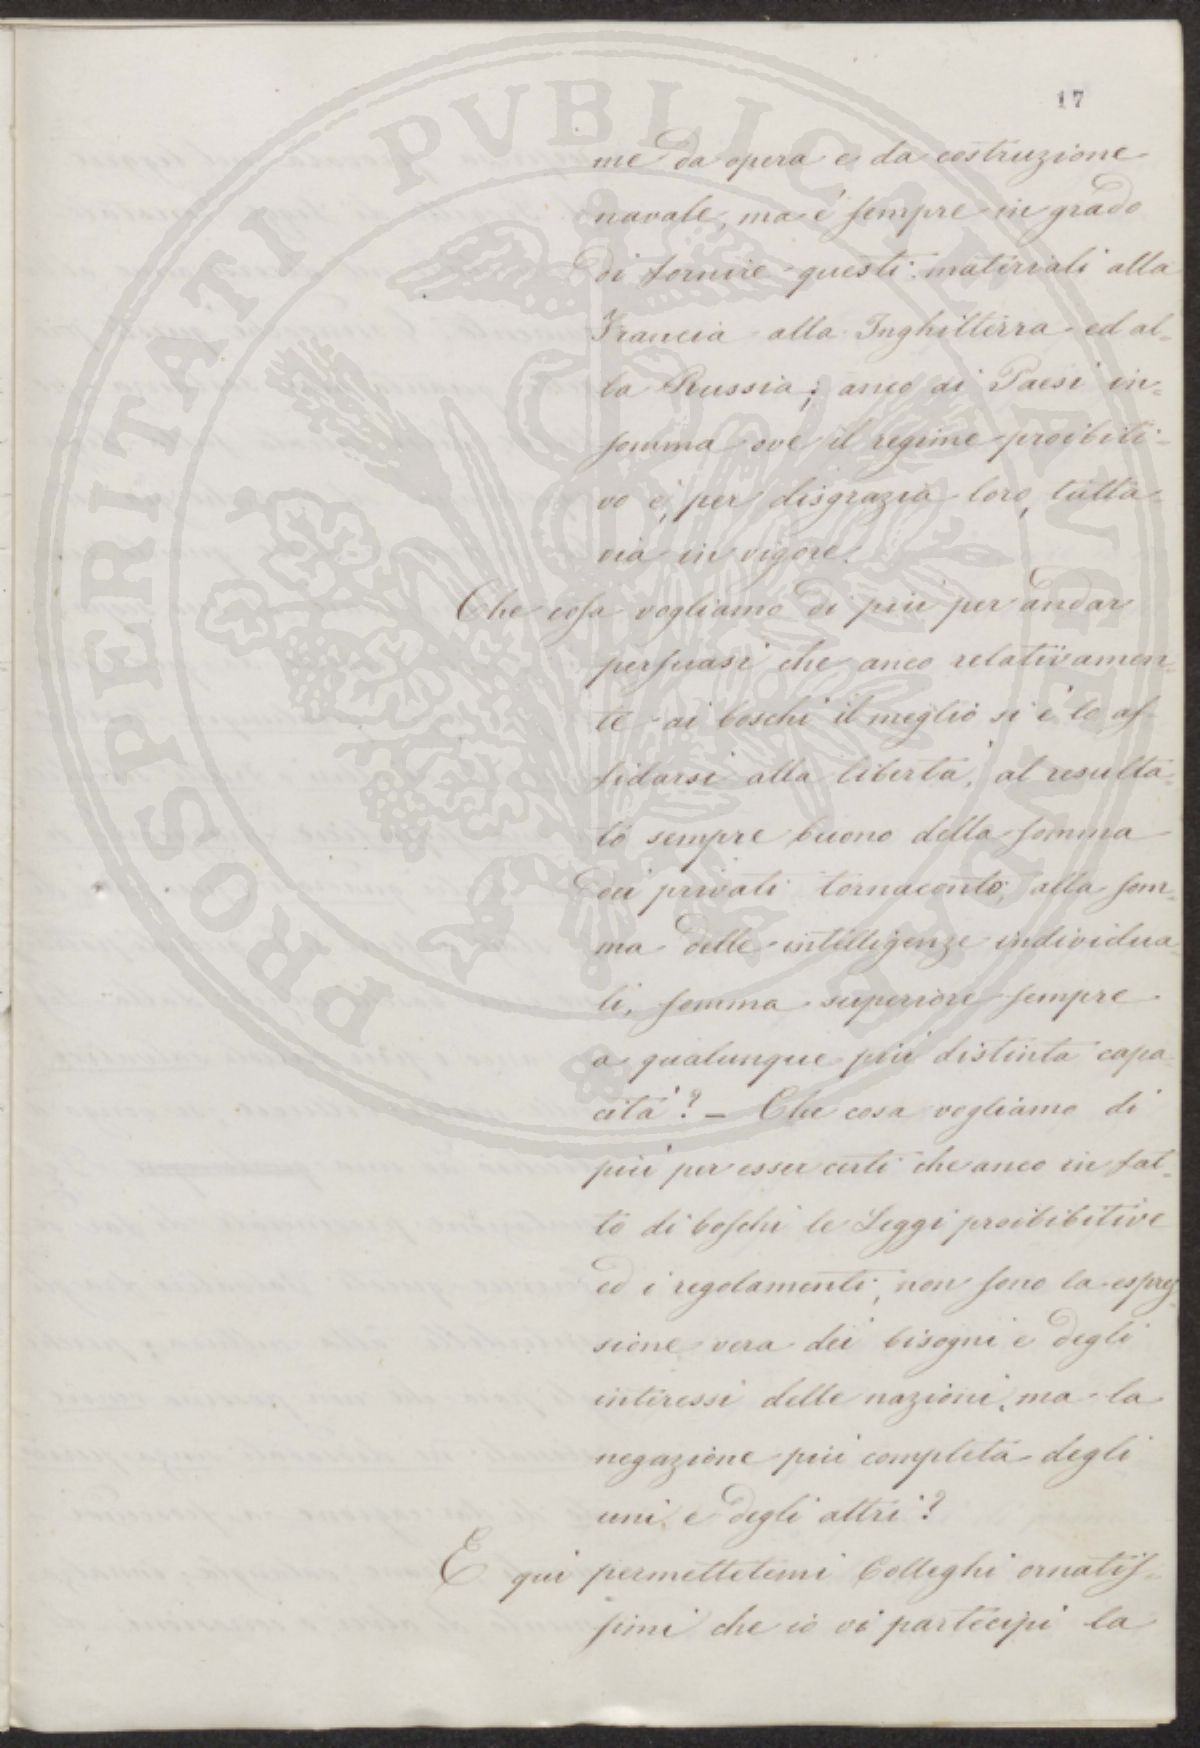 17
me da opera e da costruzione
navale, ma è sempre in grado
di fornire questi materiali alla
Francia alla Inghilterra ed al=
la Russia; anco ai Paesi in=
somma ove il regime proibiti=
vo è, per disgrazia loro, tutta=
via in vigore.
Che cosa vogliamo di più per andar
persuasi che anco relativamen=
te ai boschi il meglio si è lo af=
fidarsi alla libertà, al resulta=
to sempre buono della somma
dei privati tornaconto; alla som=
ma delle intelligenze individua=
li, somma superiore sempre
a qualunque più distinta capa=
cità? — Che cosa vogliamo di
più per esser certi che anco in fat=
to di boschi le Leggi proibibitive
ed i regolamenti, non sono la espres=
sione vera dei bisogni e degli
interessi delle nazioni, ma la
negazione più completa degli
uni e degli altri?
E qui permettetemi Colleghi ornatis=
simi che io vi partecipi la
PROSPERITATI PVBLICAE AVGENDAE